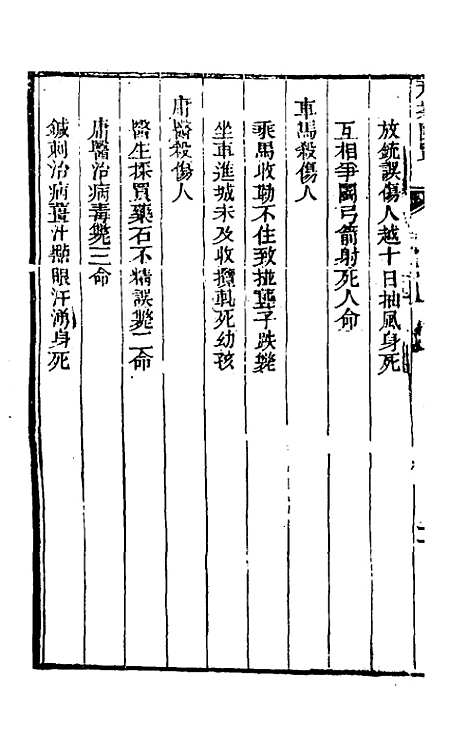 放銃誤傷人越十日抽風身死
互相爭鬬弓箭射死人命
車馬殺傷人
乘馬收勒不住致拉聾子跌斃
坐車進城未及收攬軋死幼孩
庸醫殺傷人
醫生採買藥石不精誤斃二命
庸醫治病毒斃三命
鍼刺治病薑汁點眼汗湧身死